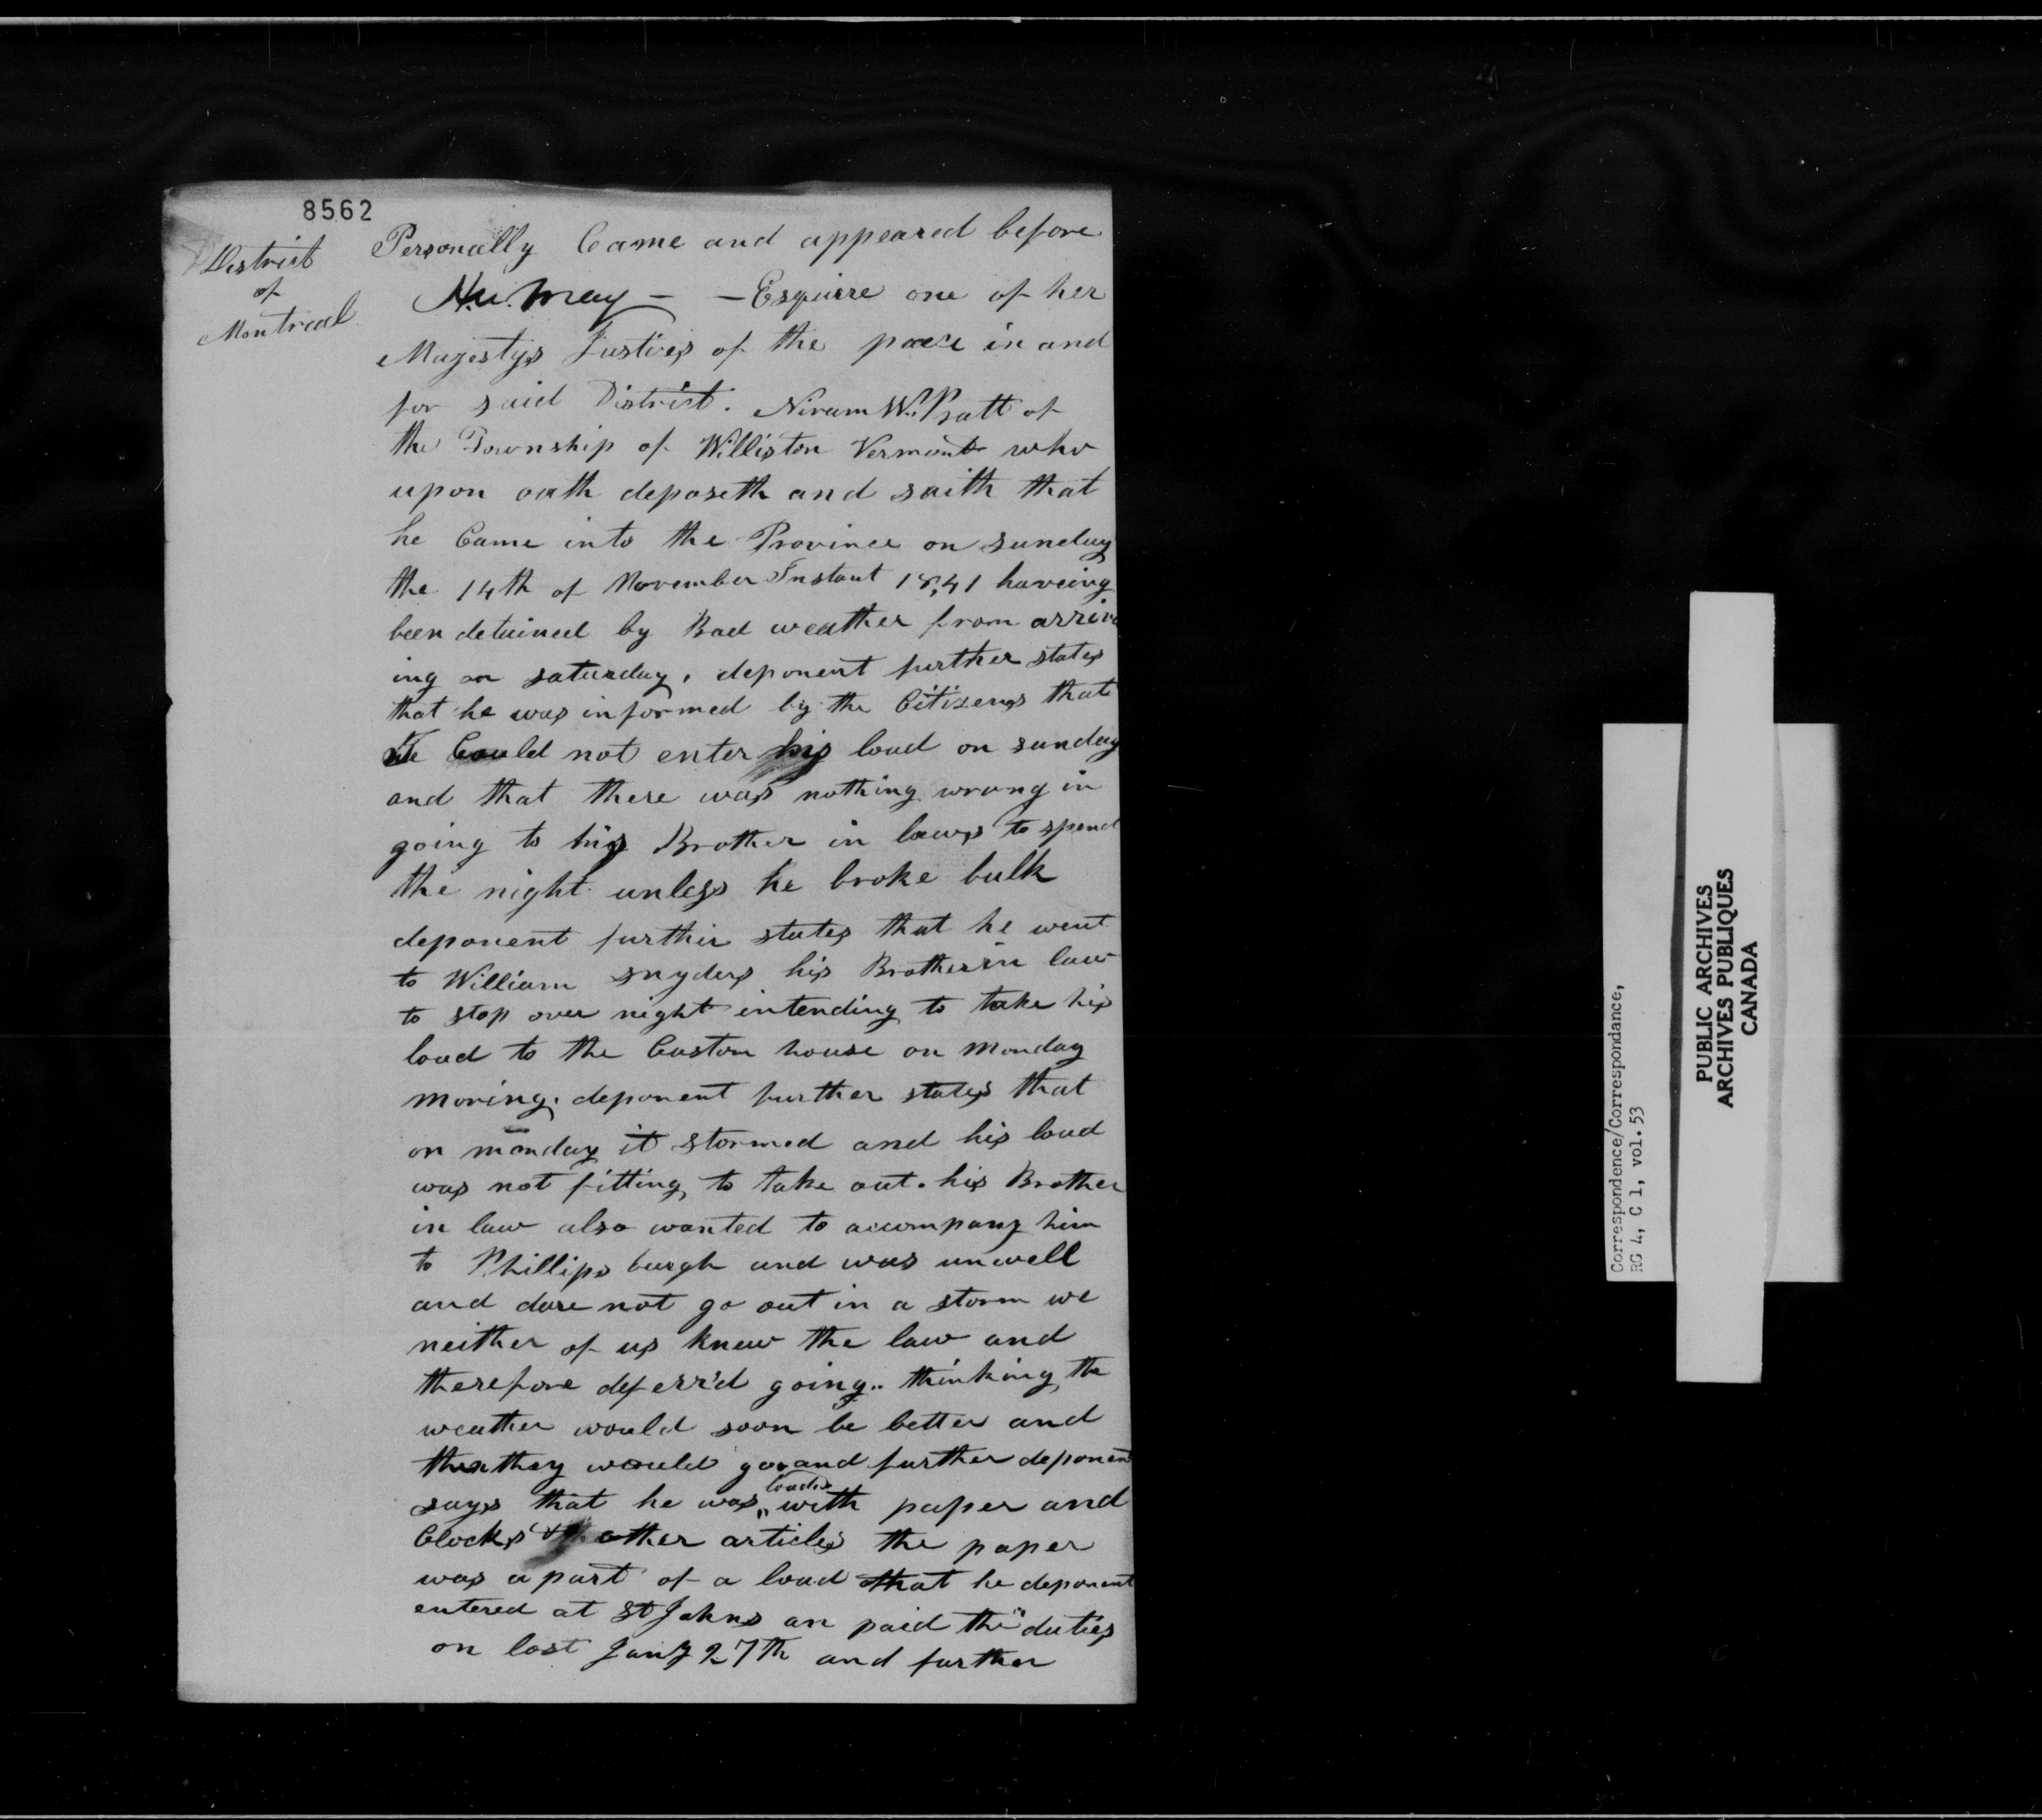 8562
District
of
Montreal
Personally Came and appeared before
May — — Esquire one of her
Majestys Justices of the peace in and
for said District. Niram W. Pratt of
the Township of Williston Vermont who
upon oath deposeth and saith that
he Came into the Province on sunday
the 14th of November Instant 1841 haveing
been detained by Bad weather from arriv
ing on saturday, deponent further states
that he was informed by the Citizens that
he Could not enter his load on sunday
and that there was nothing wrong in
going to his Brother in laws to spend
the night unless he broke bulk
deponent further states that he went
to William snyders his Brother in law
to stop over night intending to take his
load to the Custom house on monday
moring. deponent further states that
on monday it stormed and his load
was not fitting to take out. his Brother
in law also wanted to accompany him
to Phillips burgh and was unwell
and dare not go out in a storm we
neither of us knew the law and
therefore deferr'd going.. thinking the
weather would soon be better and
then they would go. and further deponent
says that he was loaded with paper and
Clocks & other articles the paper
was a part of a load that he deponent
entered at St Johns an paid the duties
on last Jany 27th and further
Correspondence/Correspondance,
RG 4, C 1, vol. 53
PUBLIC ARCHIVES
ARCHIVES PUBLIQUES
CANADA